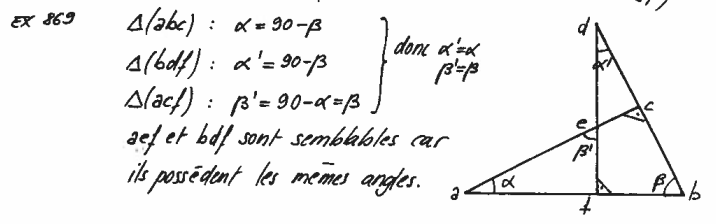 EX 869
Δ(abc) : α = 90-β
Δ(bdf) : α' = 90-β
Δ(acf) : β' = 90-α=β
donc α'=α
β'=β
aef et bdf sont semblables car
ils possèdent les mêmes angles.
d
α'
c
e
β'
a
α
β
b
f